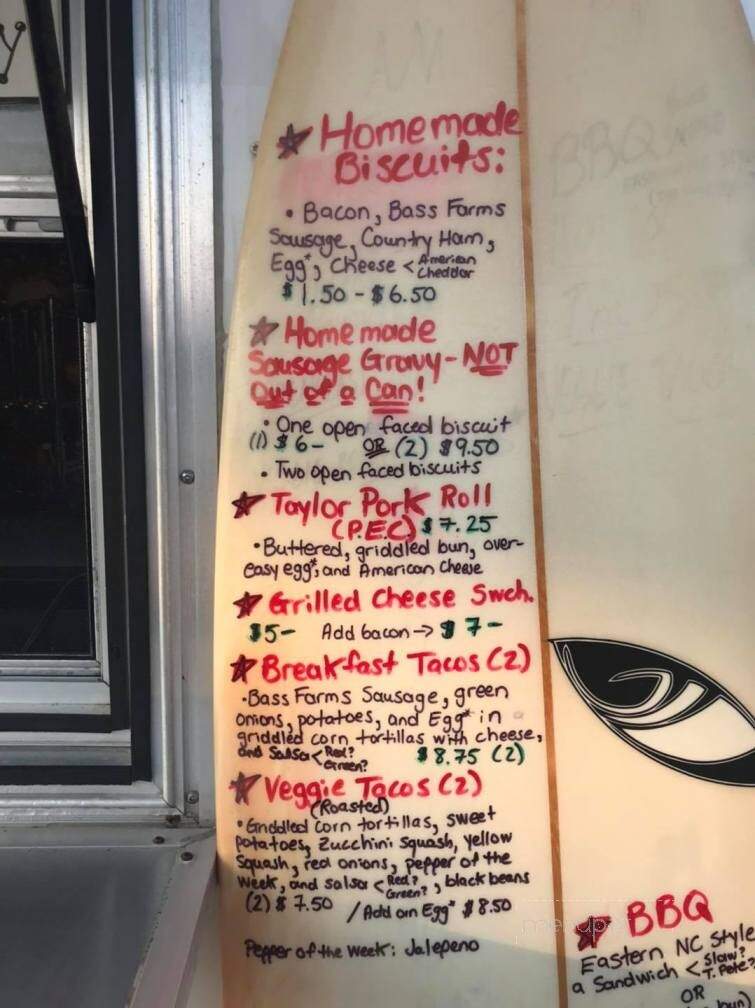 Homemade
Biscuits:
• Bacon, Bass Farms
Sausage, Country Ham,
Egg*, Cheese < American
Cheddar
$1.50 - $6.50
Homemade
Sausage Gravy - NOT
Out of a Can!
• One open faced biscuit
(1) $6- OR (2) $9.50
• Two open faced biscuits
Taylor Pork Roll
(P.E.C) $7.25
• Buttered, griddled bun, over-
easy egg*, and American Cheese
Grilled Cheese Swch.
$5- Add bacon → $7-
Breakfast Tacos (2)
• Bass Farms Sausage, green
onions, potatoes, and Egg* in
griddled corn tortillas with cheese,
and Salsa < Red?
Green? $8.75 (2)
Veggie Tacos (2)
(Roasted)
• Griddled corn tortillas, sweet
potatoes, Zucchini squash, yellow
squash, red onions, pepper of the
week, and salsa < Red?
Green?, black beans
(2) $7.50 / Add an Egg* $8.50
Pepper of the Week: Jalepeno
BBQ
BBQ
Eastern NC Style
a Sandwich < Slaw?
T. Pete?
OR
bun)